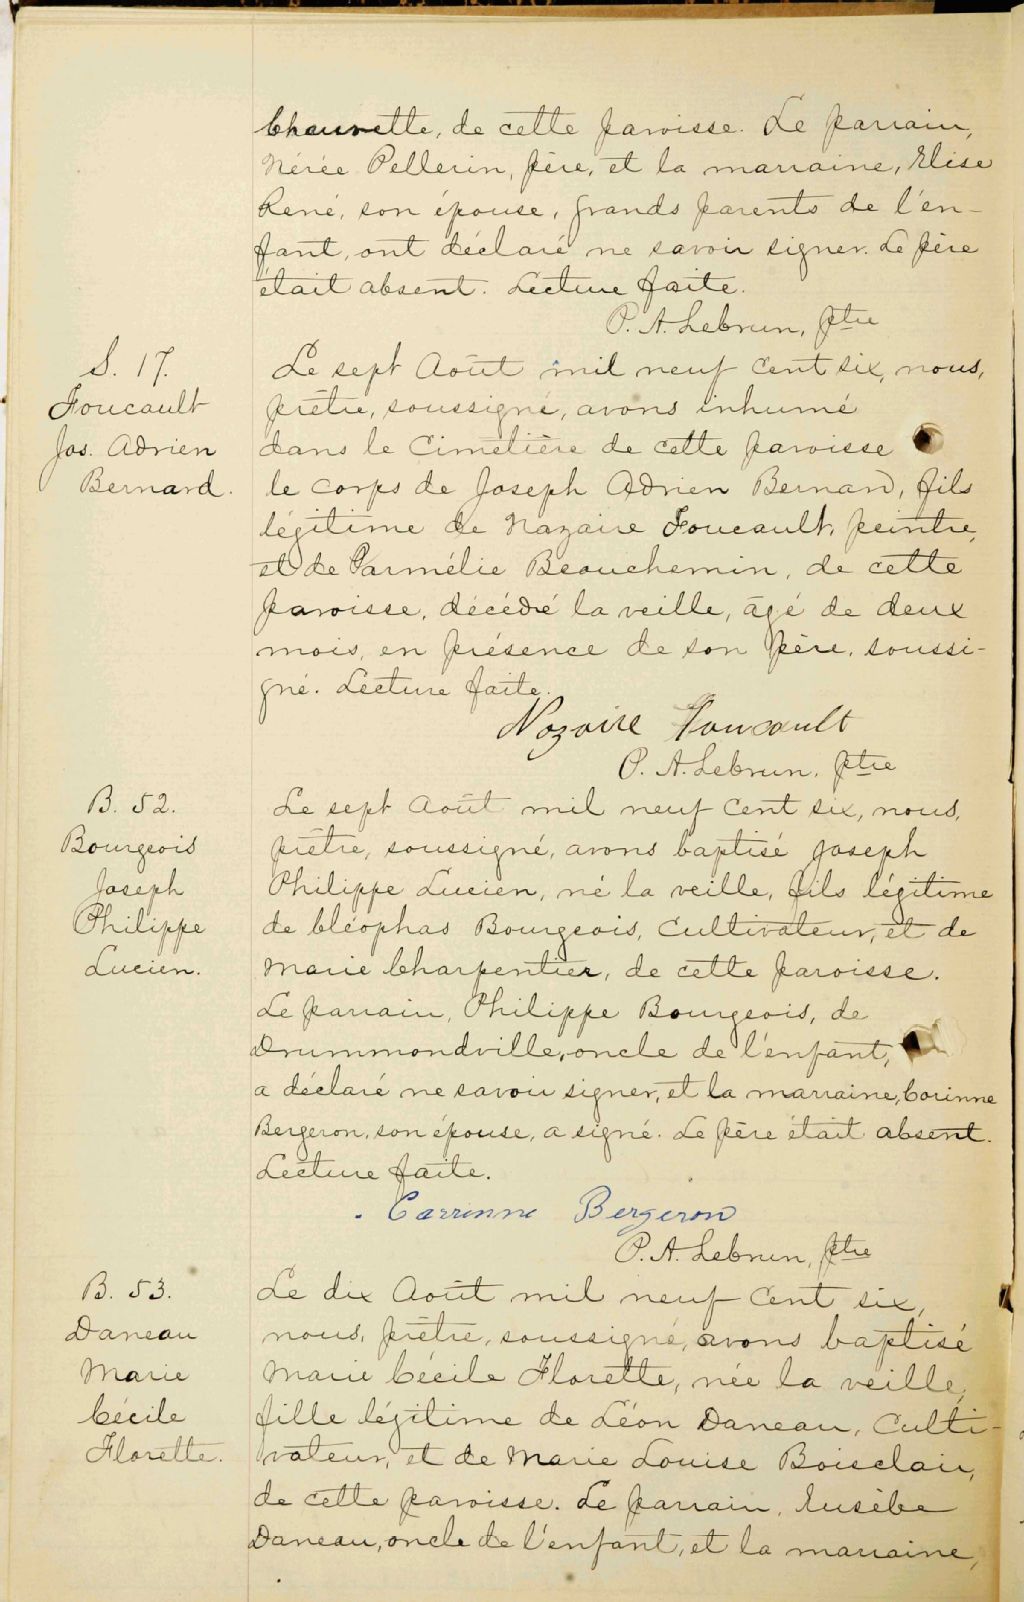 Chaurette, de cette paroisse. Le parrain,
Nérée Pellerin, père, et la marraine, Elise
René, son épouse, grands parents de l'en-
fant, ont déclaré ne savoir signer. Le père
était absent. Lecture faite.
P. A. Lebrun, ptre
S. 17.
Foucault
Jos. Adrien
Bernard.
Le sept Août mil neuf cent six, nous,
prêtre, soussigné, avons inhumé
dans le Cimetière de cette paroisse
le corps de Joseph Adrien Bernard, fils
légitime de Nazaire Foucault, peintre,
et de Parmélie Beauchemin, de cette
paroisse, décédé la veille, âgé de deux
mois, en présence de son père, soussi-
gné. Lecture faite.
Nozoire Foucault
P. A. Lebrun, ptre
B. 52.
Bourgeois
Joseph
Philippe
Lucien.
Le sept Août mil neuf cent six, nous,
prêtre, soussigné, avons baptisé Joseph
Philippe Lucien, né la veille, fils légitime
de Cléophas Bourgeois, Cultivateur, et de
Marie Charpentier, de cette paroisse.
Le parrain, Philippe Bourgeois, de
Drummondville, oncle de l'enfant,
a déclaré ne savoir signer, et la marraine, Corinne
Bergeron, son épouse, a signé. Le père était absent.
Lecture faite.
Corrinne Bergeron
P. A. Lebrun, ptre
B. 53.
Daneau
Marie
Cécile
Florette.
Le dix Août mil neuf cent six,
nous, prêtre, soussigné, avons baptisé
Marie Cécile Florette, née la veille,
fille légitime de Léon Daneau, Culti-
vateur, et de Marie Louise Boisclair,
de cette paroisse. Le parrain, Eusèbe
Daneau, oncle de l'enfant, et la marraine,